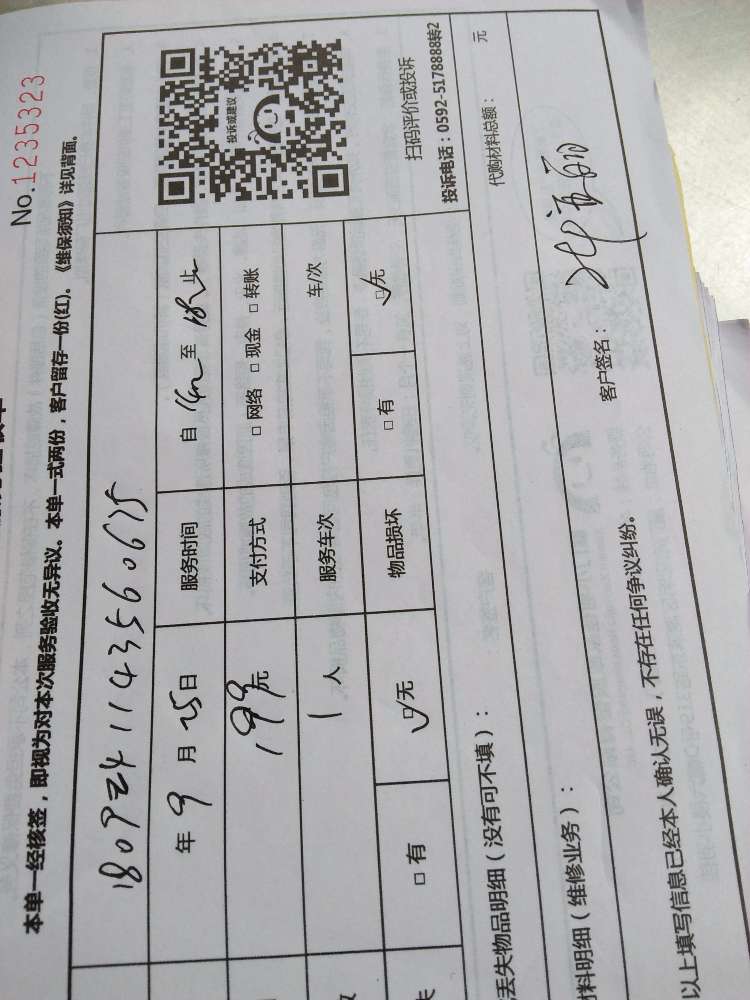 No.1235323
本单一经核签，即视为对本次服务验收无异议。本单一式两份，客户留存一份(红)。《维保须知》详见背面。
1809241143560675
年 9 月 25 日 服务时间 自 至 18 止
199元 支付方式 □ 网络 □ 现金 □ 转账
1 人 服务车次 车/次
□ 有 ☑ 无 物品损坏 □ 有 ☑ 无
投诉或建议
扫码评价或投诉
投诉电话：0592-5178888转2
丢失物品明细（没有可不填）：
代购材料总额： 元
料明细（维修业务）：
客户签名：
以上填写信息已经本人确认无误，不存在任何争议纠纷。